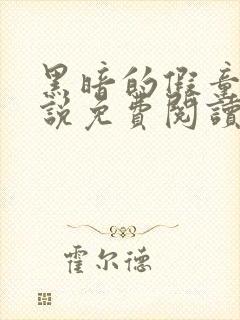 黑暗的假童
說免費閱讀
霍尔德